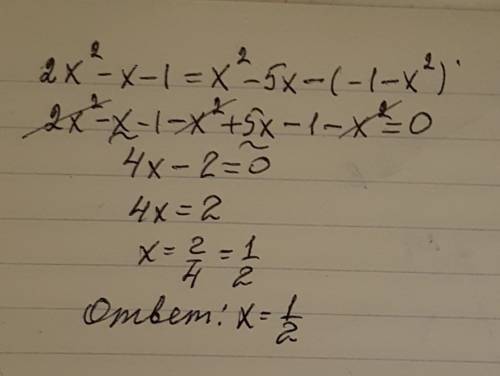 2x² - x - 1 = x² - 5x - (-1 - x²)
2x² - x - 1 - x² + 5x - 1 - x² = 0
4x - 2 = 0
4x = 2
x = 2/4 = 1/2
Ответ: x = 1/2